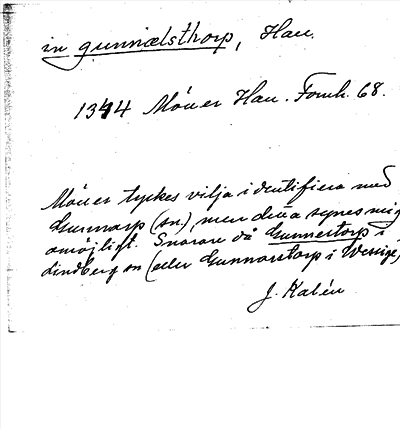 in gunnælsthorp, Hau.
1344 Möller Hau. Fornh. 68.
Möller tyckes vilja identifiera med
Gunnarp (sn.), men detta synes mig
omöjligt. Snarare då Gunnertorp i
Lindberg sn (eller Gunnarstorp i Veinge)
J. Kalén